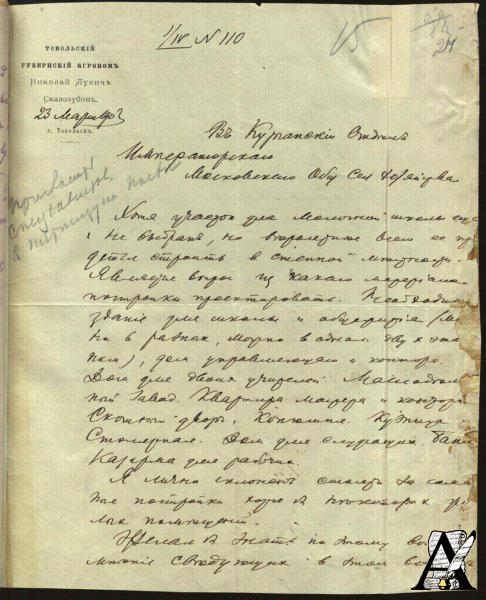 1/IV N 110
15
24
ТОБОЛЬСКІЙ
ГУБЕРНСКІЙ АГРОНОМЪ
Николай Лукичъ
Скалозубовъ.
23 Марта
г. Тобольскъ.
Въ Курганскій Отдѣлъ
Императорскаго
Московскаго Общ Сел Хозяйства
Хотя участокъ для Молочной школы еще
и не выбранъ, но вѣроятнѣе всего ее
дется строить въ степной мѣстности.
Является вопросъ изъ какого матеріала
постройки проектировать. Необходимы
зданія для школы и общежитія
но въ разныхъ, можно въ одномъ двух эта
номъ), дом управляющаго и контора.
Дом для двоихъ учителей. Маслодѣль
ный завод. Квартира мастера и
Скотный дворъ, Конюшня. Кузница
Столярная. Дом для служащихъ. Баня
Казарма для рабочихъ.
Я лично склоненъ стоять за сама
ныя постройки хотя въ нѣкоторыхъ
помѣщеній.
Желалъ знать по этому
мнѣнія свѣдущихъ в этом